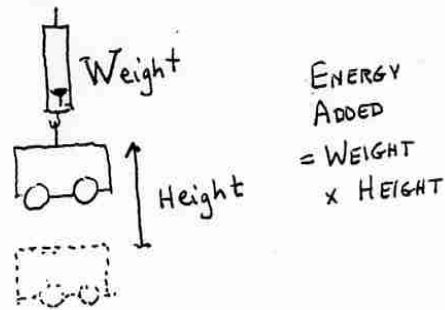 Weight
Height
ENERGY
ADDED
= WEIGHT
x HEIGHT